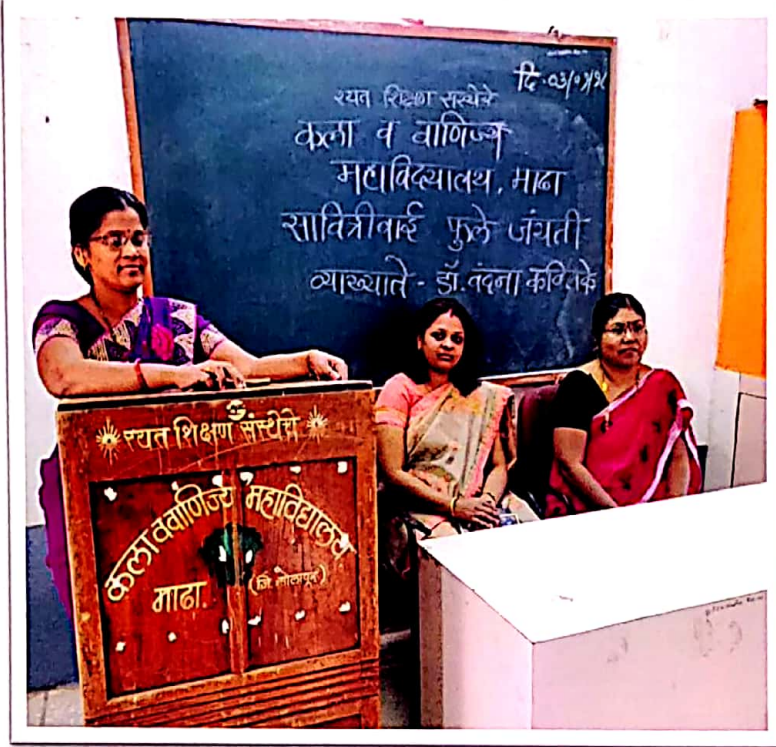 दि.-०३/०१/१८
रयत शिक्षण संस्थेचे
कला व वाणिज्य
महाविद्यालय, माढा
सावित्रीबाई फुले जंयती
व्याख्याते - डॉ. वंदना
रयत शिक्षण संस्थेचे
कला व वाणिज्य महाविद्यालय
माढा.
(जि. सोलापूर)